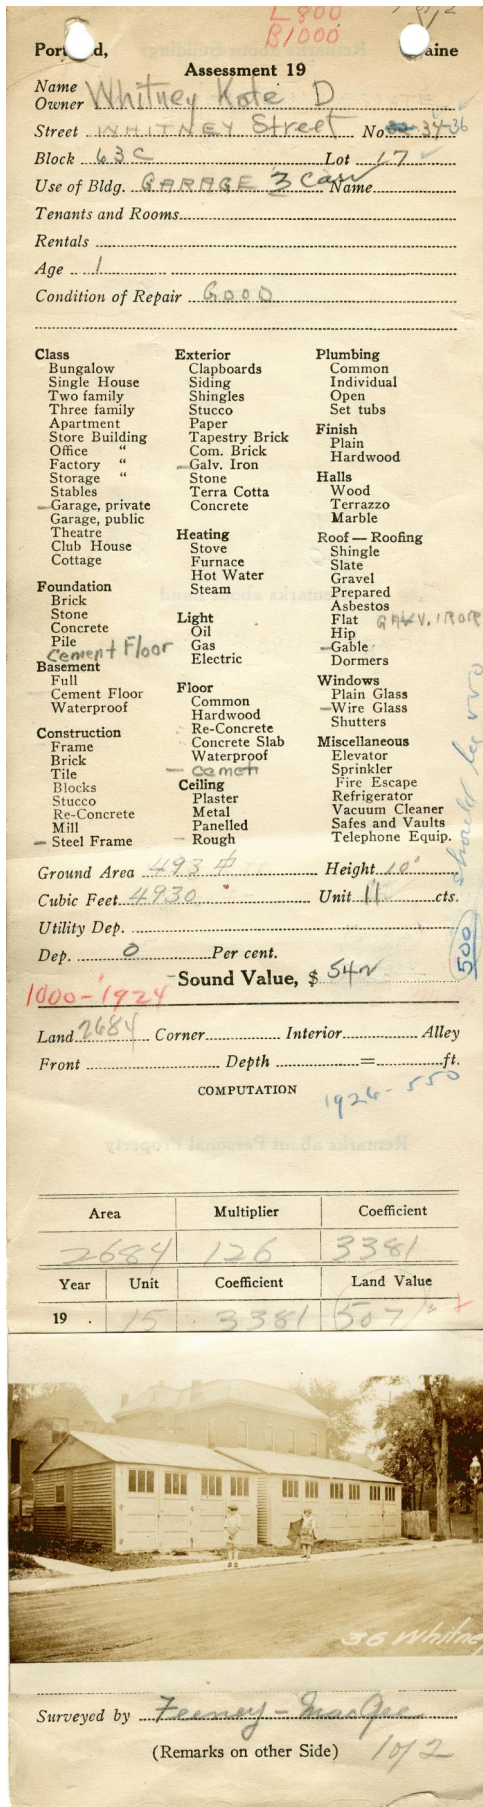 L 800
B 1000
Portland, Maine
Assessment 19
Name
Owner Whitney Kate D
Street WHITNEY Street No 34-36
Block 63C Lot 17
Use of Bldg. GARAGE 3 Cars Name
Tenants and Rooms
Rentals
Age 1
Condition of Repair GOOD
Class
Bungalow
Single House
Two family
Three family
Apartment
Store Building
Office "
Factory "
Storage "
Stables
Garage, private
Garage, public
Theatre
Club House
Cottage
Foundation
Brick
Stone
Concrete
Pile
Cement Floor
Basement
Full
Cement Floor
Waterproof
Construction
Frame
Brick
Tile
Blocks
Stucco
Re-Concrete
Mill
Steel Frame
Exterior
Clapboards
Siding
Shingles
Stucco
Paper
Tapestry Brick
Com. Brick
Galv. Iron
Stone
Terra Cotta
Concrete
Heating
Stove
Furnace
Hot Water
Steam
Light
Oil
Gas
Electric
Floor
Common
Hardwood
Re-Concrete
Concrete Slab
Waterproof
Cement
Ceiling
Plaster
Metal
Panelled
Rough
Plumbing
Common
Individual
Open
Set tubs
Finish
Plain
Hardwood
Halls
Wood
Terrazzo
Marble
Roof — Roofing
Shingle
Slate
Gravel
Prepared
Asbestos
Flat GALV. IRON
Hip
Gable
Dormers
Windows
Plain Glass
Wire Glass
Shutters
Miscellaneous
Elevator
Sprinkler
Fire Escape
Refrigerator
Vacuum Cleaner
Safes and Vaults
Telephone Equip.
500 should be
Ground Area 493 Height 10'
Cubic Feet 4930 Unit 11 cts.
Utility Dep.
Dep. 0 Per cent.
Sound Value, $ 542
1000-1924
Land 2684 Corner Interior Alley
Front Depth = ft.
COMPUTATION
1926-550
Area Multiplier Coefficient
2684 126 3381
Year Unit Coefficient Land Value
19 . 15 3381 507
36 Whitney
Surveyed by Feeney - MacGee
(Remarks on other Side) 1 of 2